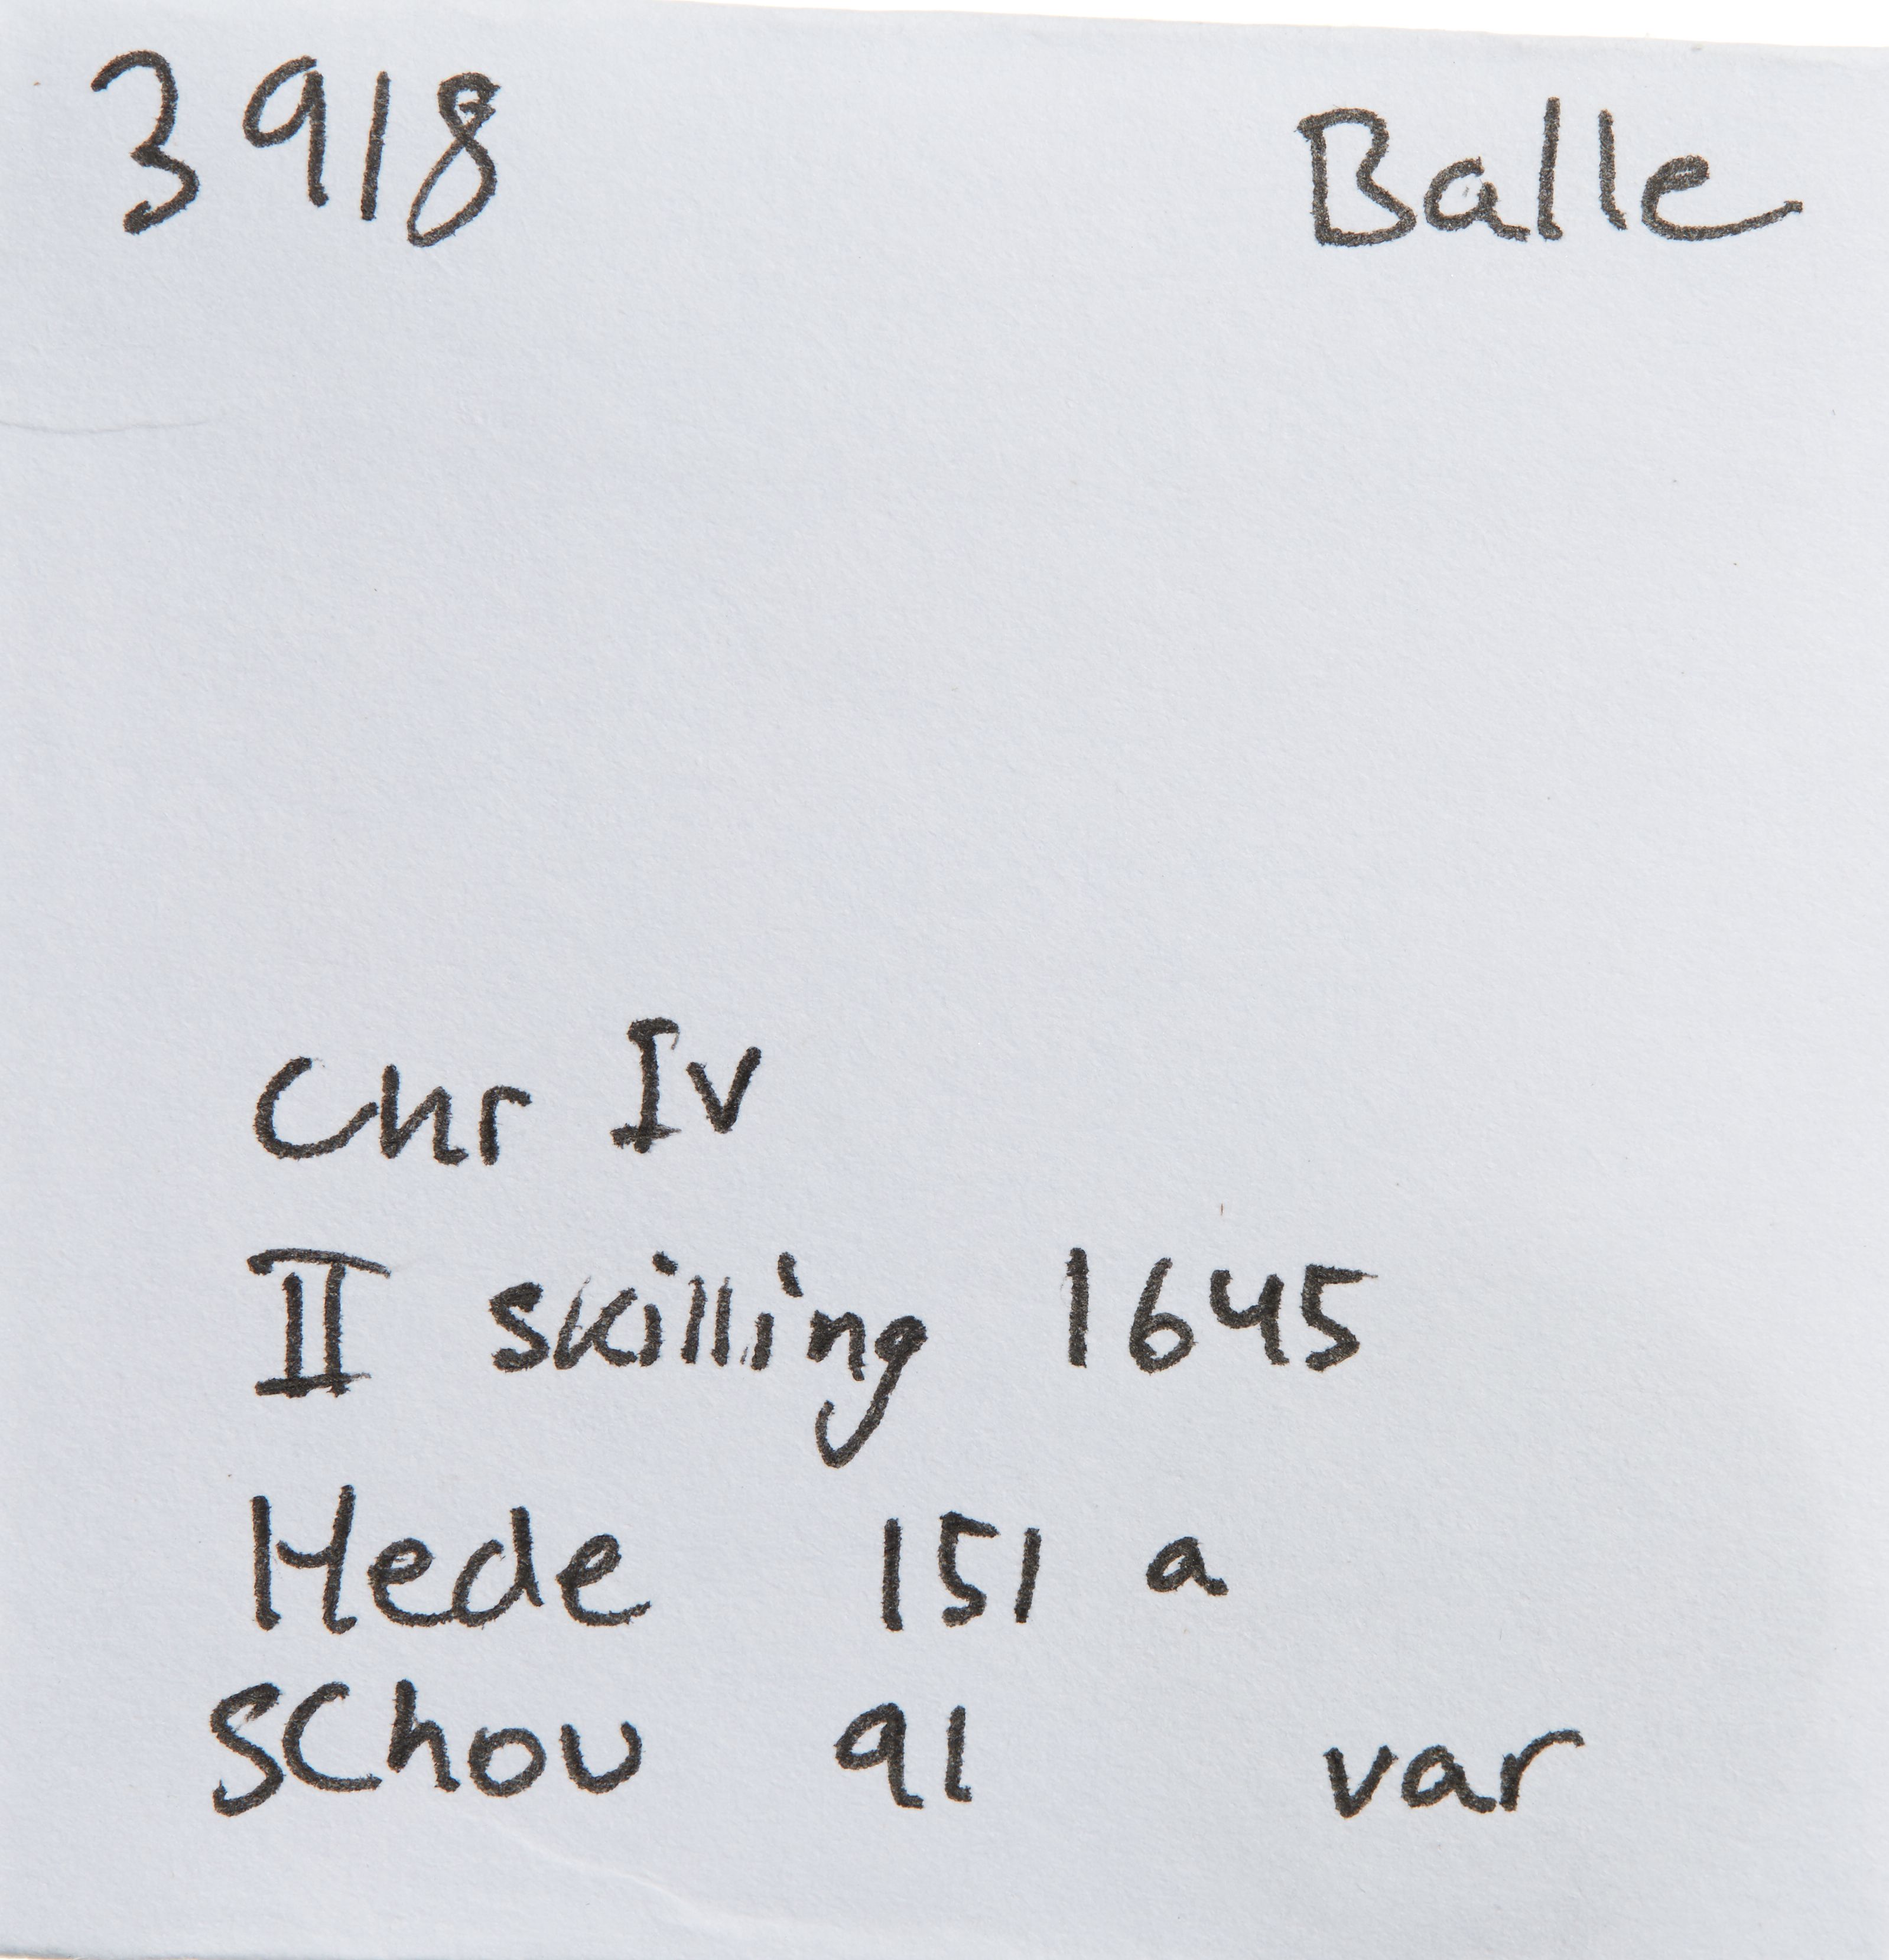 3918 Balle
Chr IV
II skilling 1645
Hede 151 a
SChou 91 var